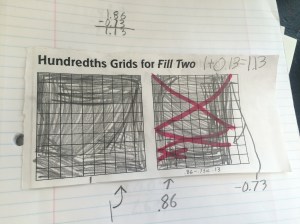 1.86
-0.73
1.13
Hundredths Grids for Fill Two
1+0.13=1.13
1
.86
-0.73